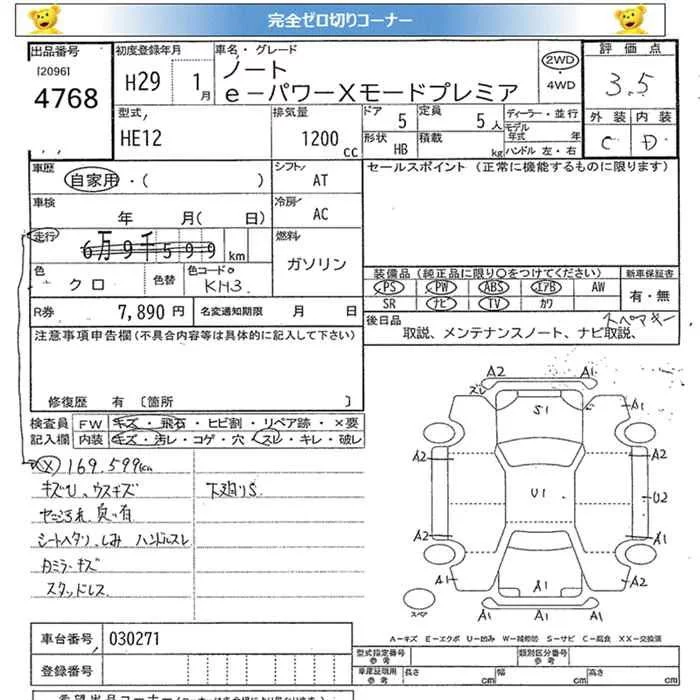 完全ゼロ切りコーナー
出品番号 初度登録年月 車名・グレード 評価点
[2096] 4768
H29 1月
ノート
e-パワーXモードプレミア
2WD・4WD
3.5
外装 内装
C D
型式 排気量 ドア 定員 ディーラー・並行
HE12 1200cc 5 5人 モデル年式 年
形状 HB 積載 kg ハンドル 左・右
車歴 シフト セールスポイント (正常に機能するものに限ります)
自家用・( ) AT
車検 冷房
年 月( 日) AC
走行 燃料
6万9千599km ガソリン
色 色替 色コードNo 装備品(純正品に限り○をつけてください) 新車保証書
クロ KH3 PS PW ABS エアB AW 有・無
SR ナビ TV カワ
R券 7,890円 名変通知期限 月 日 後日品 スペアキー
取説、メンテナンスノート、ナビ取説、
注意事項申告欄(不具合内容等は具体的に記入して下さい)
修復歴 有 〔箇所 〕
検査員 FW キズ・飛石・ヒビ割・リペア跡・×要
記入欄 内装 キズ・汚レ・コゲ・穴・スレ・キレ・破レ
(X) 169,599km
キズU、ウスキズ 下廻りS
シートヘタリ、しみ ハンドルスレ
スタッドレス
A2 A1
ズレ
S1
A1
A2 A2
U1 U2
A2 A1
A1 A1 A1
A1 A1 A1
スペア
A-キズ E-エクボ U-凹み W-補修跡 S-サビ C-腐食 XX-交換済
車台番号 030271 型式指定番号 参考 類別区分番号 参考
登録番号 車庫証明用 参考 長さ cm 幅 cm 高さ cm
希望出品コーナー